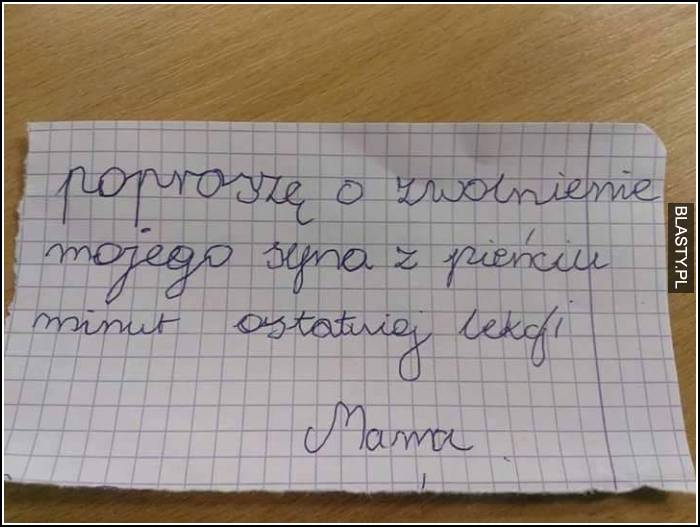 poproszę o zwolnienie
mojego syna z pieńciu
minut ostatniej lekcji
Mama
BLASTY.PL